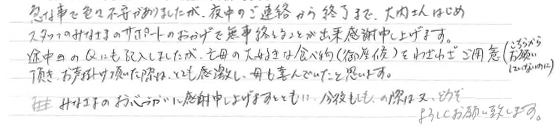 急な事で色々不安がありましたが、夜中のご連絡から終了まで、大内さんはじめ
スタッフのみなさまのサポートのおかげで無事終ることが出来感謝申し上げます。
途中のQにも記入しましたが、亡母の大好きな食べ物をわざわざご用意(こちらからお願いしていないのに)
頂き、お声掛け頂いた際は、とても感激し、母も喜んでいたと思います。
みなさまのお心づかいに感謝申し上げますとともに、今後もしもの際は又、どうぞ
よろしくお願い致します。